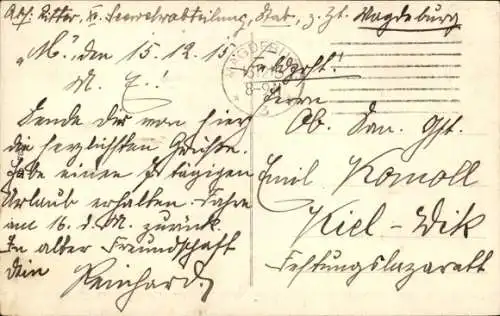 Abs: Ritter, II. Seewehrabteilung, Stab, z. Zt. Magdeburg
"M.", den 15.12.15
M. E.!
Sende Dir von hier
die herzlichsten Grüße.
Habe einen tägigen
Urlaub erhalten. Fahre
am 16. d. M. zurück.
In alter Freundschaft
Dein Reinhard
MAGDEBURG
8-9
Feldpost!
Herrn
Ob. San. Gst.
Emil Komoll
Kiel-Wik
Festungslazarett